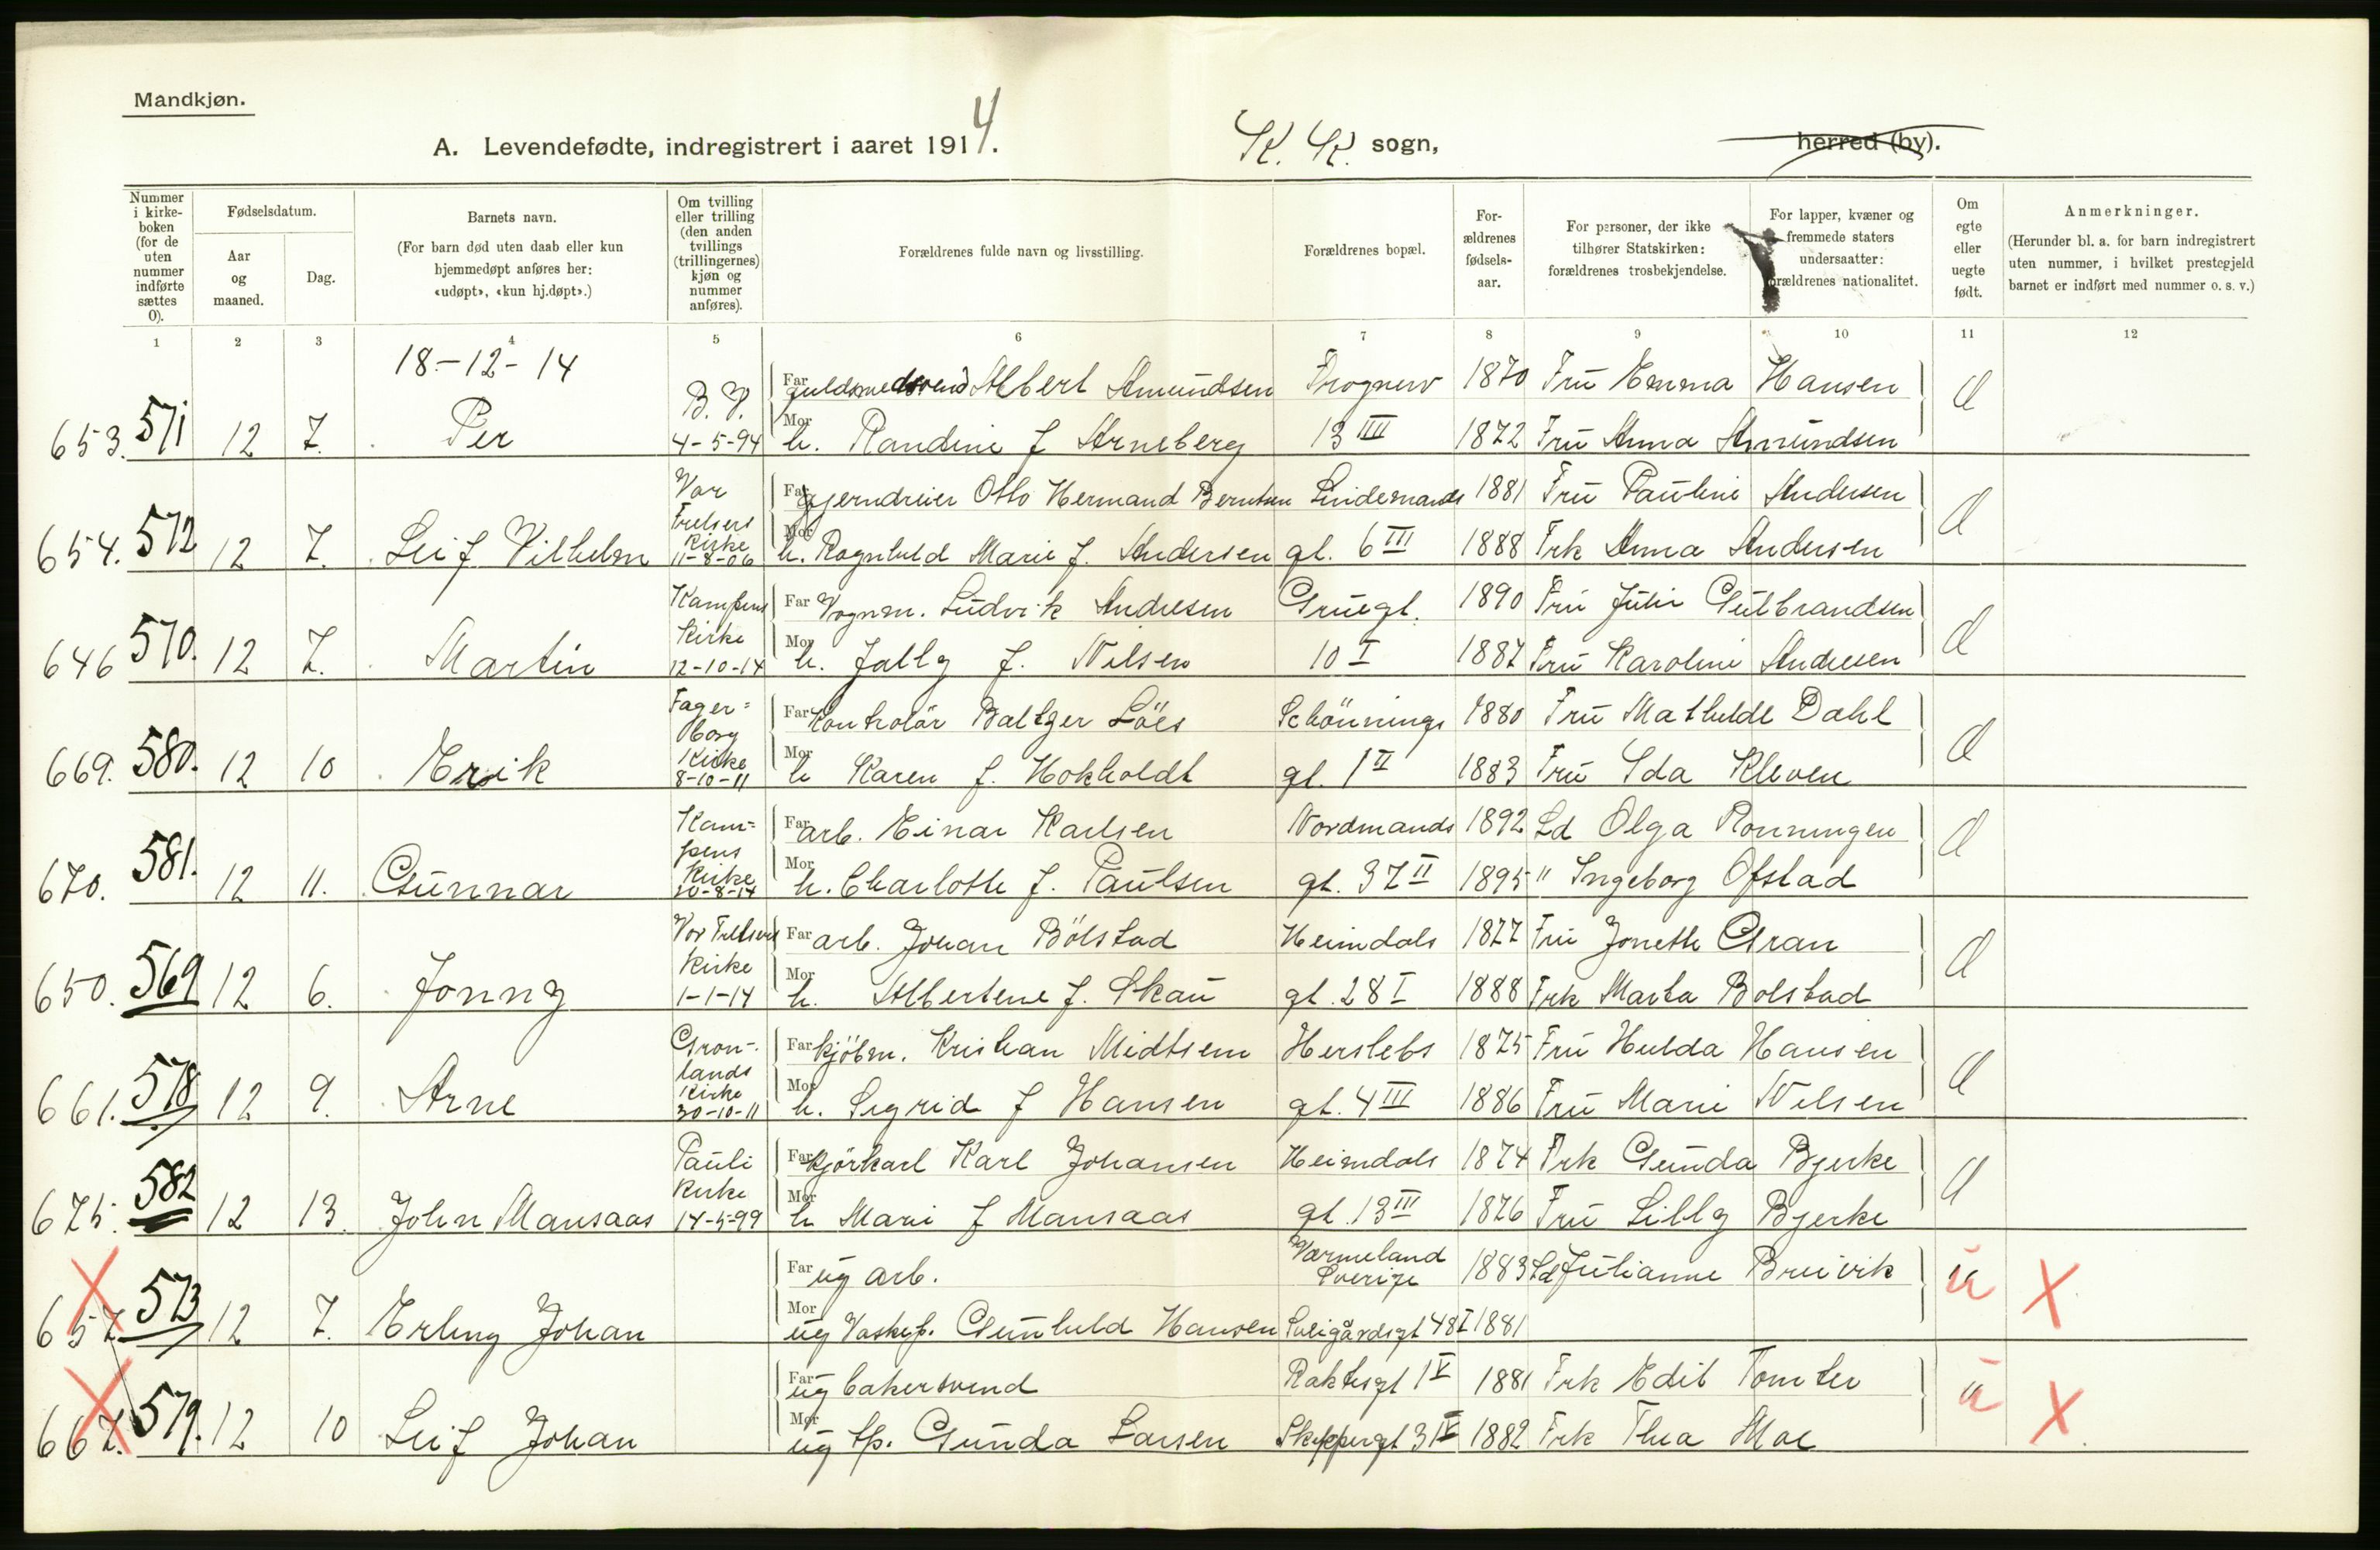 Mandkjøn.
A. Levendefødte, indregistrert i aaret 1914. K. K. sogn, herred (by).
Nummer i kirkeboken (for de uten nummer indførte sættes 0).
Fødselsdatum.
Aar og maaned.
Dag.
Barnets navn.
(For barn død uten daab eller kun hjemmedøpt anføres her: «udøpt», «kun hj.døpt».)
Om tvilling eller trilling (den anden tvillings (trillingernes) kjøn og nummer anføres).
Forældrenes fulde navn og livsstilling.
Forældrenes bopæl.
For-ældrenes fødsels-aar.
For personer, der ikke tilhører Statskirken: forældrenes trosbekjendelse.
For lapper, kvæner og fremmede staters undersaatter: forældrenes nationalitet.
Om egte eller uegte født.
Anmerkninger.
(Herunder bl. a. for barn indregistrert uten nummer, i hvilket prestegjeld barnet er indført med nummer o. s. v.)
1 2 3 4 5 6 7 8 9 10 11 12
18-12-14
Far guldsmedsvend Albert Amundsen Frognerv 1870 Fru Emma Hansen
653. 571 12 7. Per B. V. 4-5-94 Mor h. Randine f Arneberg 13 IIII 1872 Fru Anna Amundsen
Vor Frelsers Kirke Far Gjerndreier Otto Hermand Berntsen Lindemands 1881 Fru Pauline Andersen
654. 572 12 7. Leif Vilhelm 11-8-06 Mor h. Ragnhild Marie f. Andersen gt. 6 III 1888 Frk Anna Andersen
Kampens Kirke Far Vognm. Ludvik Andresen Gruegt. 1890 Fru Julie Gulbrandsen
646 570. 12 7. Martin 12-10-14 Mor h. Jally f. Nilsen 10 I 1887 Fru Karoline Andresen
Fager= borg Kirke Far Kontrolör Baltzer Löes Schönnings 1880 Fru Mathilde Dahl
669. 580. 12 10 Erik 8-10-11 Mor h Karen f. Hokholdt gt. 1 II 1883 Fru Ida Kleven
Kam= pens Kirke Far arb. Einar Karlsen Nordmands 1892 Ld Olga Ronningen
670. 581. 12 11. Gunnar 10-8-14 Mor h. Charlotte f. Paulsen gt. 37 II 1895 " Ingeborg Ofstad
Vor Frelsers Kirke Far arb. Johan Bölstad Heimdals 1877 Fru Jonette Gran
650. 569 12 6. Jonny 1-1-14 Mor h. Albertene f. Skau gt. 28 I 1888 Frk Marta Bolstad
Gron- lands Kirke Far kjöbm. Kristian Midtsem Herslebs 1875 Fru Hulda Hansen
661. 578 12 9. Arne 30-10-11 Mor h. Sigrid f Hansen gt. 4 III 1886 Fru Marie Nilsen
Pauli Kirke Far Kjörkarl Karl Johansen Heimdals 1874 Frk Gunda Bjerke
675. 582 12 13. John Mansaas 14-5-99 Mor h Marie f Mansaas gt. 13 III 1876 Fru Lilly Bjerke
Far ug arb. Værmeland Sverige 1883 Ld Julianne Breivik u X
657. 573 12 7. Erling Johan Mor ug Vaskep. Gunhild Hansen 48 I 1881
Far ug bakersvend 1881 Frk Edit Tomter u X
667. 579. 12 10 Leif Johan Mor ug tp. Gunda Larsen Skippergt 3 IV 1882 Frk Thea Moe